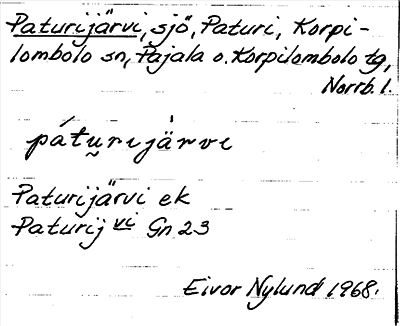 Paturijärvi, sjö, Paturi, Korpi-
lombolo sn, Pajala o. Korpilombolo tg,
Norrb. l.
pátu̯rijä̀rvi
Paturijärvi ek
Paturij vi Gn 23
Eivor Nylund 1968.